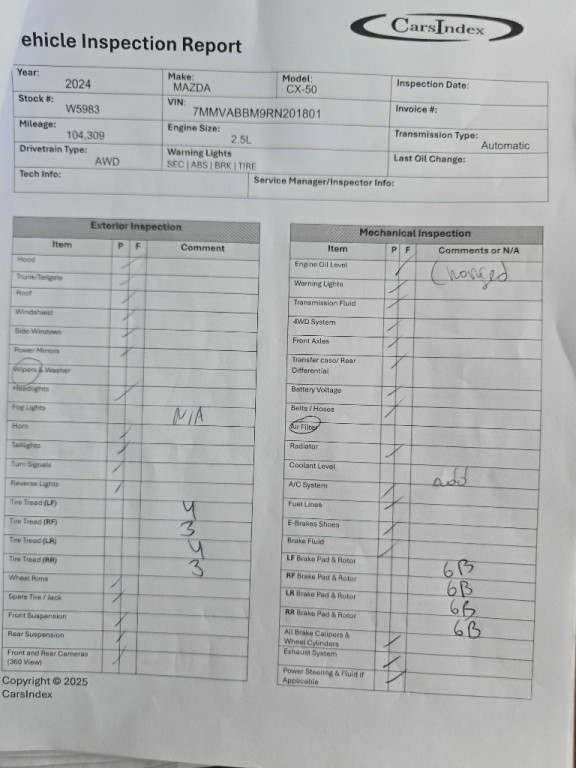 CarsIndex
ehicle Inspection Report
Year: 2024 Make: MAZDA Model: CX-50 Inspection Date:
Stock #: W5983 VIN: 7MMVABBM9RN201801 Invoice #:
Mileage: 104,309 Engine Size: 2.5L Transmission Type: Automatic
Drivetrain Type: AWD Warning Lights SEC | ABS | BRK | TIRE Last Oil Change:
Tech Info: Service Manager/Inspector Info:
Exterior Inspection
Item P F Comment
Hood
Trunk/Tailgate
Roof
Windshield
Side Windows
Power Mirrors
Wipers & Washer
Headlights
Fog Lights N/A
Horn
Taillights
Turn Signals
Reverse Lights
Tire Tread (LF) 4
Tire Tread (RF) 3
Tire Tread (LR) 4
Tire Tread (RR) 3
Wheel Rims
Spare Tire / Jack
Front Suspension
Rear Suspension
Front and Rear Cameras
(360 View)
Copyright © 2025
CarsIndex
Mechanical Inspection
Item P F Comments or N/A
Engine Oil Level Changed
Warning Lights
Transmission Fluid
4WD System
Front Axles
Transfer case/ Rear
Differential
Battery Voltage
Belts / Hoses
Air Filter
Radiator
Coolant Level add
A/C System
Fuel Lines
E-Brakes Shoes
Brake Fluid
LF Brake Pad & Rotor 6B
RF Brake Pad & Rotor 6B
LR Brake Pad & Rotor 6B
RR Brake Pad & Rotor 6B
All Brake Calipers &
Wheel Cylinders
Exhaust System
Power Steering & Fluid if
Applicable